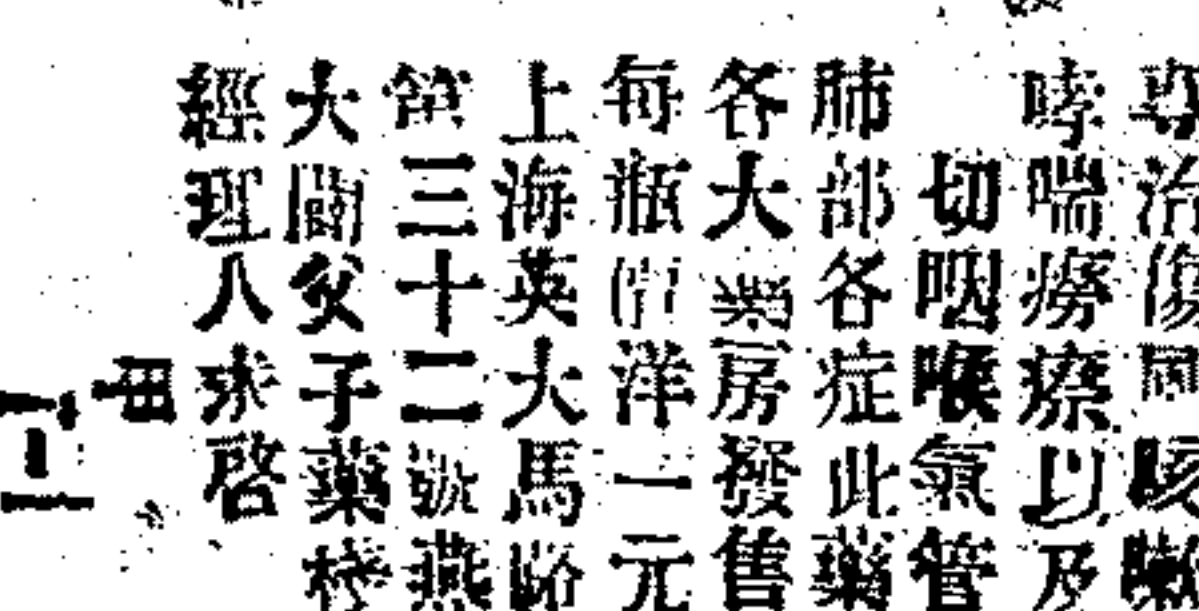 專治傷風咳嗽
哮喘癆瘵以及
切咽喉氣管
肺部各症此藥
各大藥房發售
每瓶價洋一元
上海英大馬路
第三十二號燕
大闢父子藥行
經理人朱啓